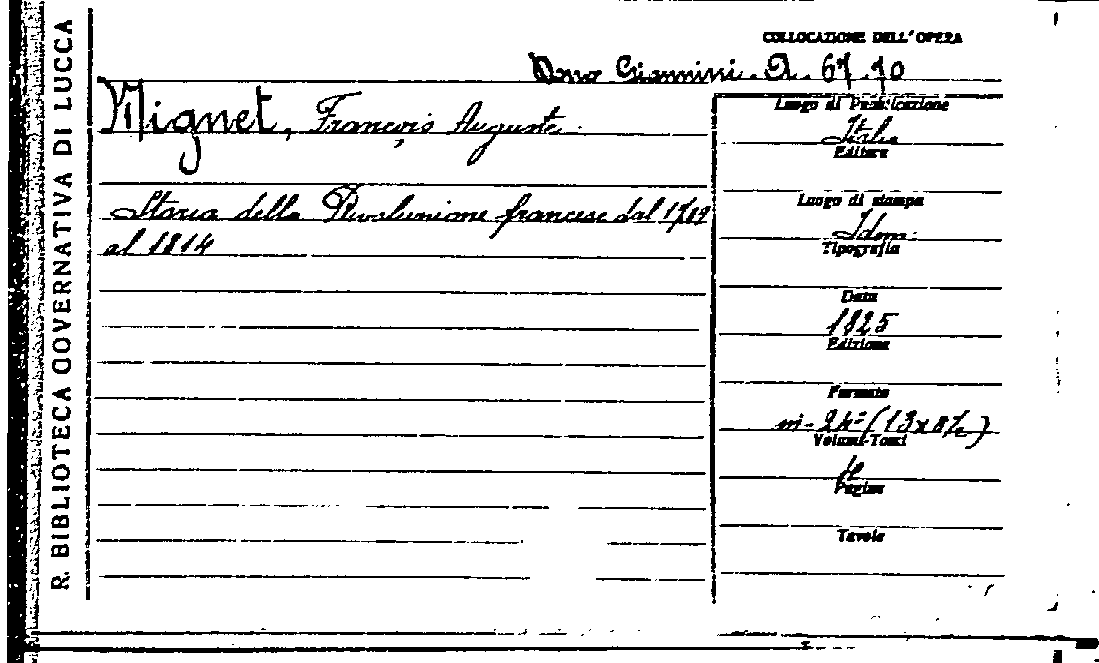 R. BIBLIOTECA GOVERNATIVA DI LUCCA
COLLOCAZIONE DELL'OPERA
Dono Giannini. A. 67. 70
Mignet, François Auguste
Storia della Rivoluzione francese dal 1789
al 1814
Luogo di Pubblicazione
Italia
Editore
Luogo di stampa
Idem.
Tipografia
Data
1825
Edizione
Formato
in-24º (13x8½)
Volumi-Tomi
Pagine
Tavole